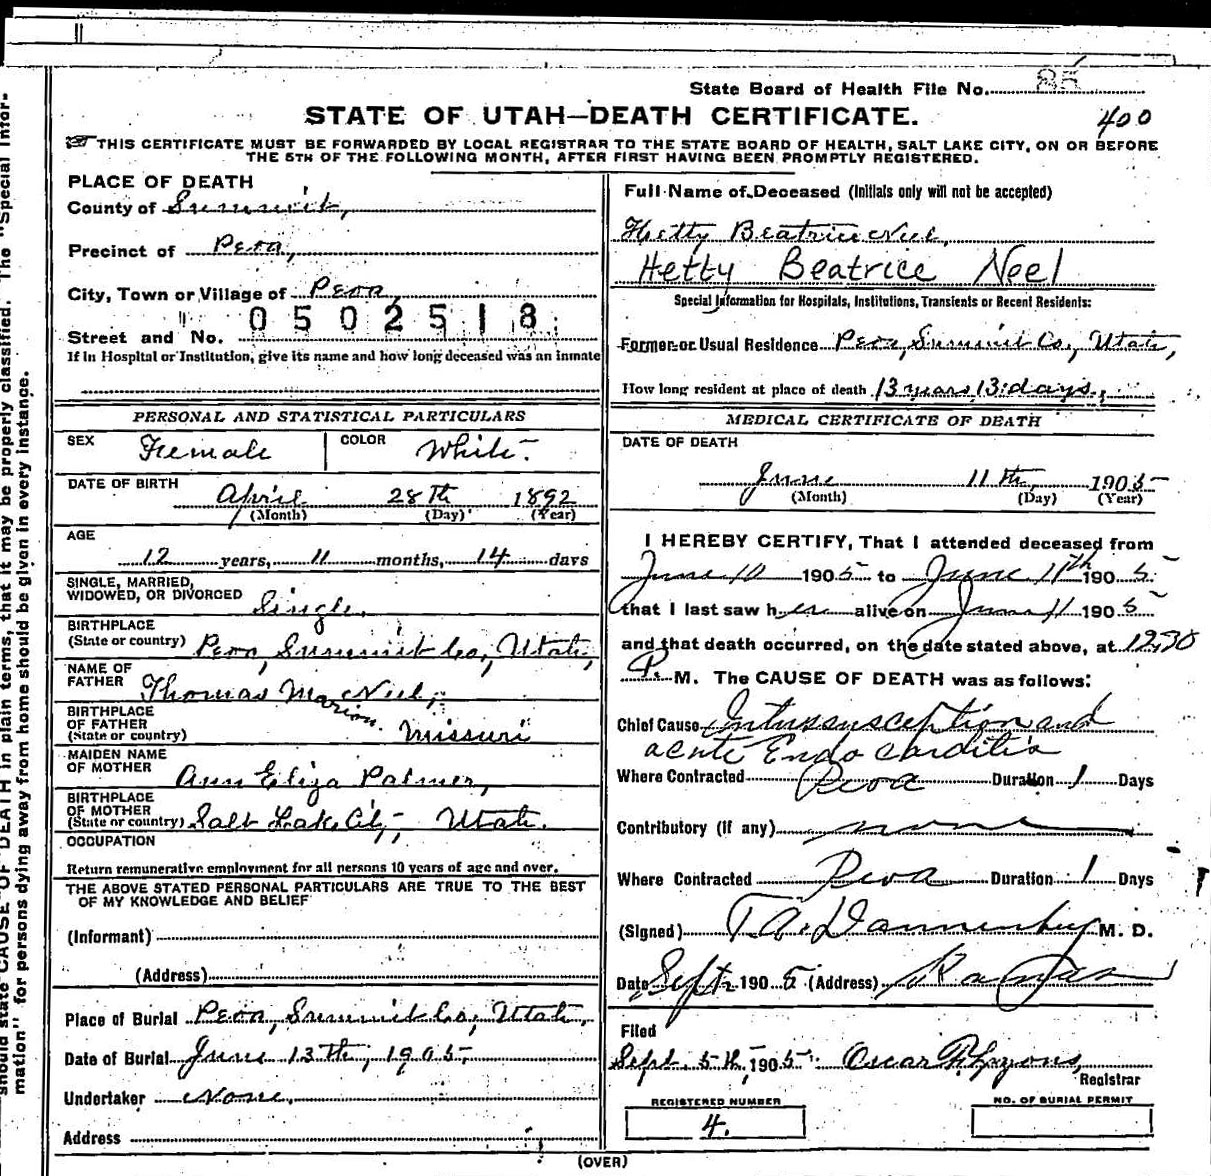 State Board of Health File No. 85
STATE OF UTAH—DEATH CERTIFICATE. 400
THIS CERTIFICATE MUST BE FORWARDED BY LOCAL REGISTRAR TO THE STATE BOARD OF HEALTH, SALT LAKE CITY, ON OR BEFORE
THE 5TH OF THE FOLLOWING MONTH, AFTER FIRST HAVING BEEN PROMPTLY REGISTERED.
PLACE OF DEATH
County of Summit,
Precinct of Peoa,
City, Town or Village of Peoa,
Street and No. " 0502518
If in Hospital or Institution, give its name and how long deceased was an inmate
PERSONAL AND STATISTICAL PARTICULARS
SEX Female COLOR White.
DATE OF BIRTH April 28th 1892
(Month) (Day) (Year)
AGE
12 years, 11 months, 14 days
SINGLE, MARRIED,
WIDOWED, OR DIVORCED Single.
BIRTHPLACE
(State or country) Peoa, Summit Co., Utah,
NAME OF
FATHER Thomas Marion Neel,
BIRTHPLACE
OF FATHER
(State or country) Missouri
MAIDEN NAME
OF MOTHER Ann Eliza Palmer,
BIRTHPLACE
OF MOTHER
(State or country) Salt Lake City, Utah.
OCCUPATION
Return remunerative employment for all persons 10 years of age and over.
THE ABOVE STATED PERSONAL PARTICULARS ARE TRUE TO THE BEST
OF MY KNOWLEDGE AND BELIEF
(Informant)
(Address)
Place of Burial Peoa, Summit Co., Utah,
Date of Burial June 13th, 1905,
Undertaker None.
Address
Full Name of Deceased (Initials only will not be accepted)
Hetty Beatrice Neel,
Hetty Beatrice Neel
Special Information for Hospitals, Institutions, Transients or Recent Residents:
Former or Usual Residence Peoa, Summit Co., Utah,
How long resident at place of death 13 years, 13 days,
MEDICAL CERTIFICATE OF DEATH
DATE OF DEATH
June 11th, 1905
(Month) (Day) (Year)
I HEREBY CERTIFY, That I attended deceased from
June 10 1905 to June 11th 1905
that I last saw her alive on June 11 1905
and that death occurred, on the date stated above, at 12:30
P. M. The CAUSE OF DEATH was as follows:
Chief Cause Intussusception and
acute Endo carditis
Where Contracted Peoa Duration 1 Days
Contributory (if any) none
Where Contracted Peoa Duration 1 Days
(Signed) M. D.
Date Sept. 1905 (Address) Kamas
Filed
Sept. 5th, 1905. Oscar P. Lyons,
Registrar
REGISTERED NUMBER
4.
NO. OF BURIAL PERMIT
(OVER)
should state CAUSE OF DEATH in plain terms, that it may be properly classified. The "Special Infor-
mation" for persons dying away from home should be given in every instance.